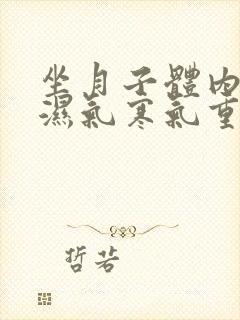 坐月子體內
濕氣寒氣重
哲若